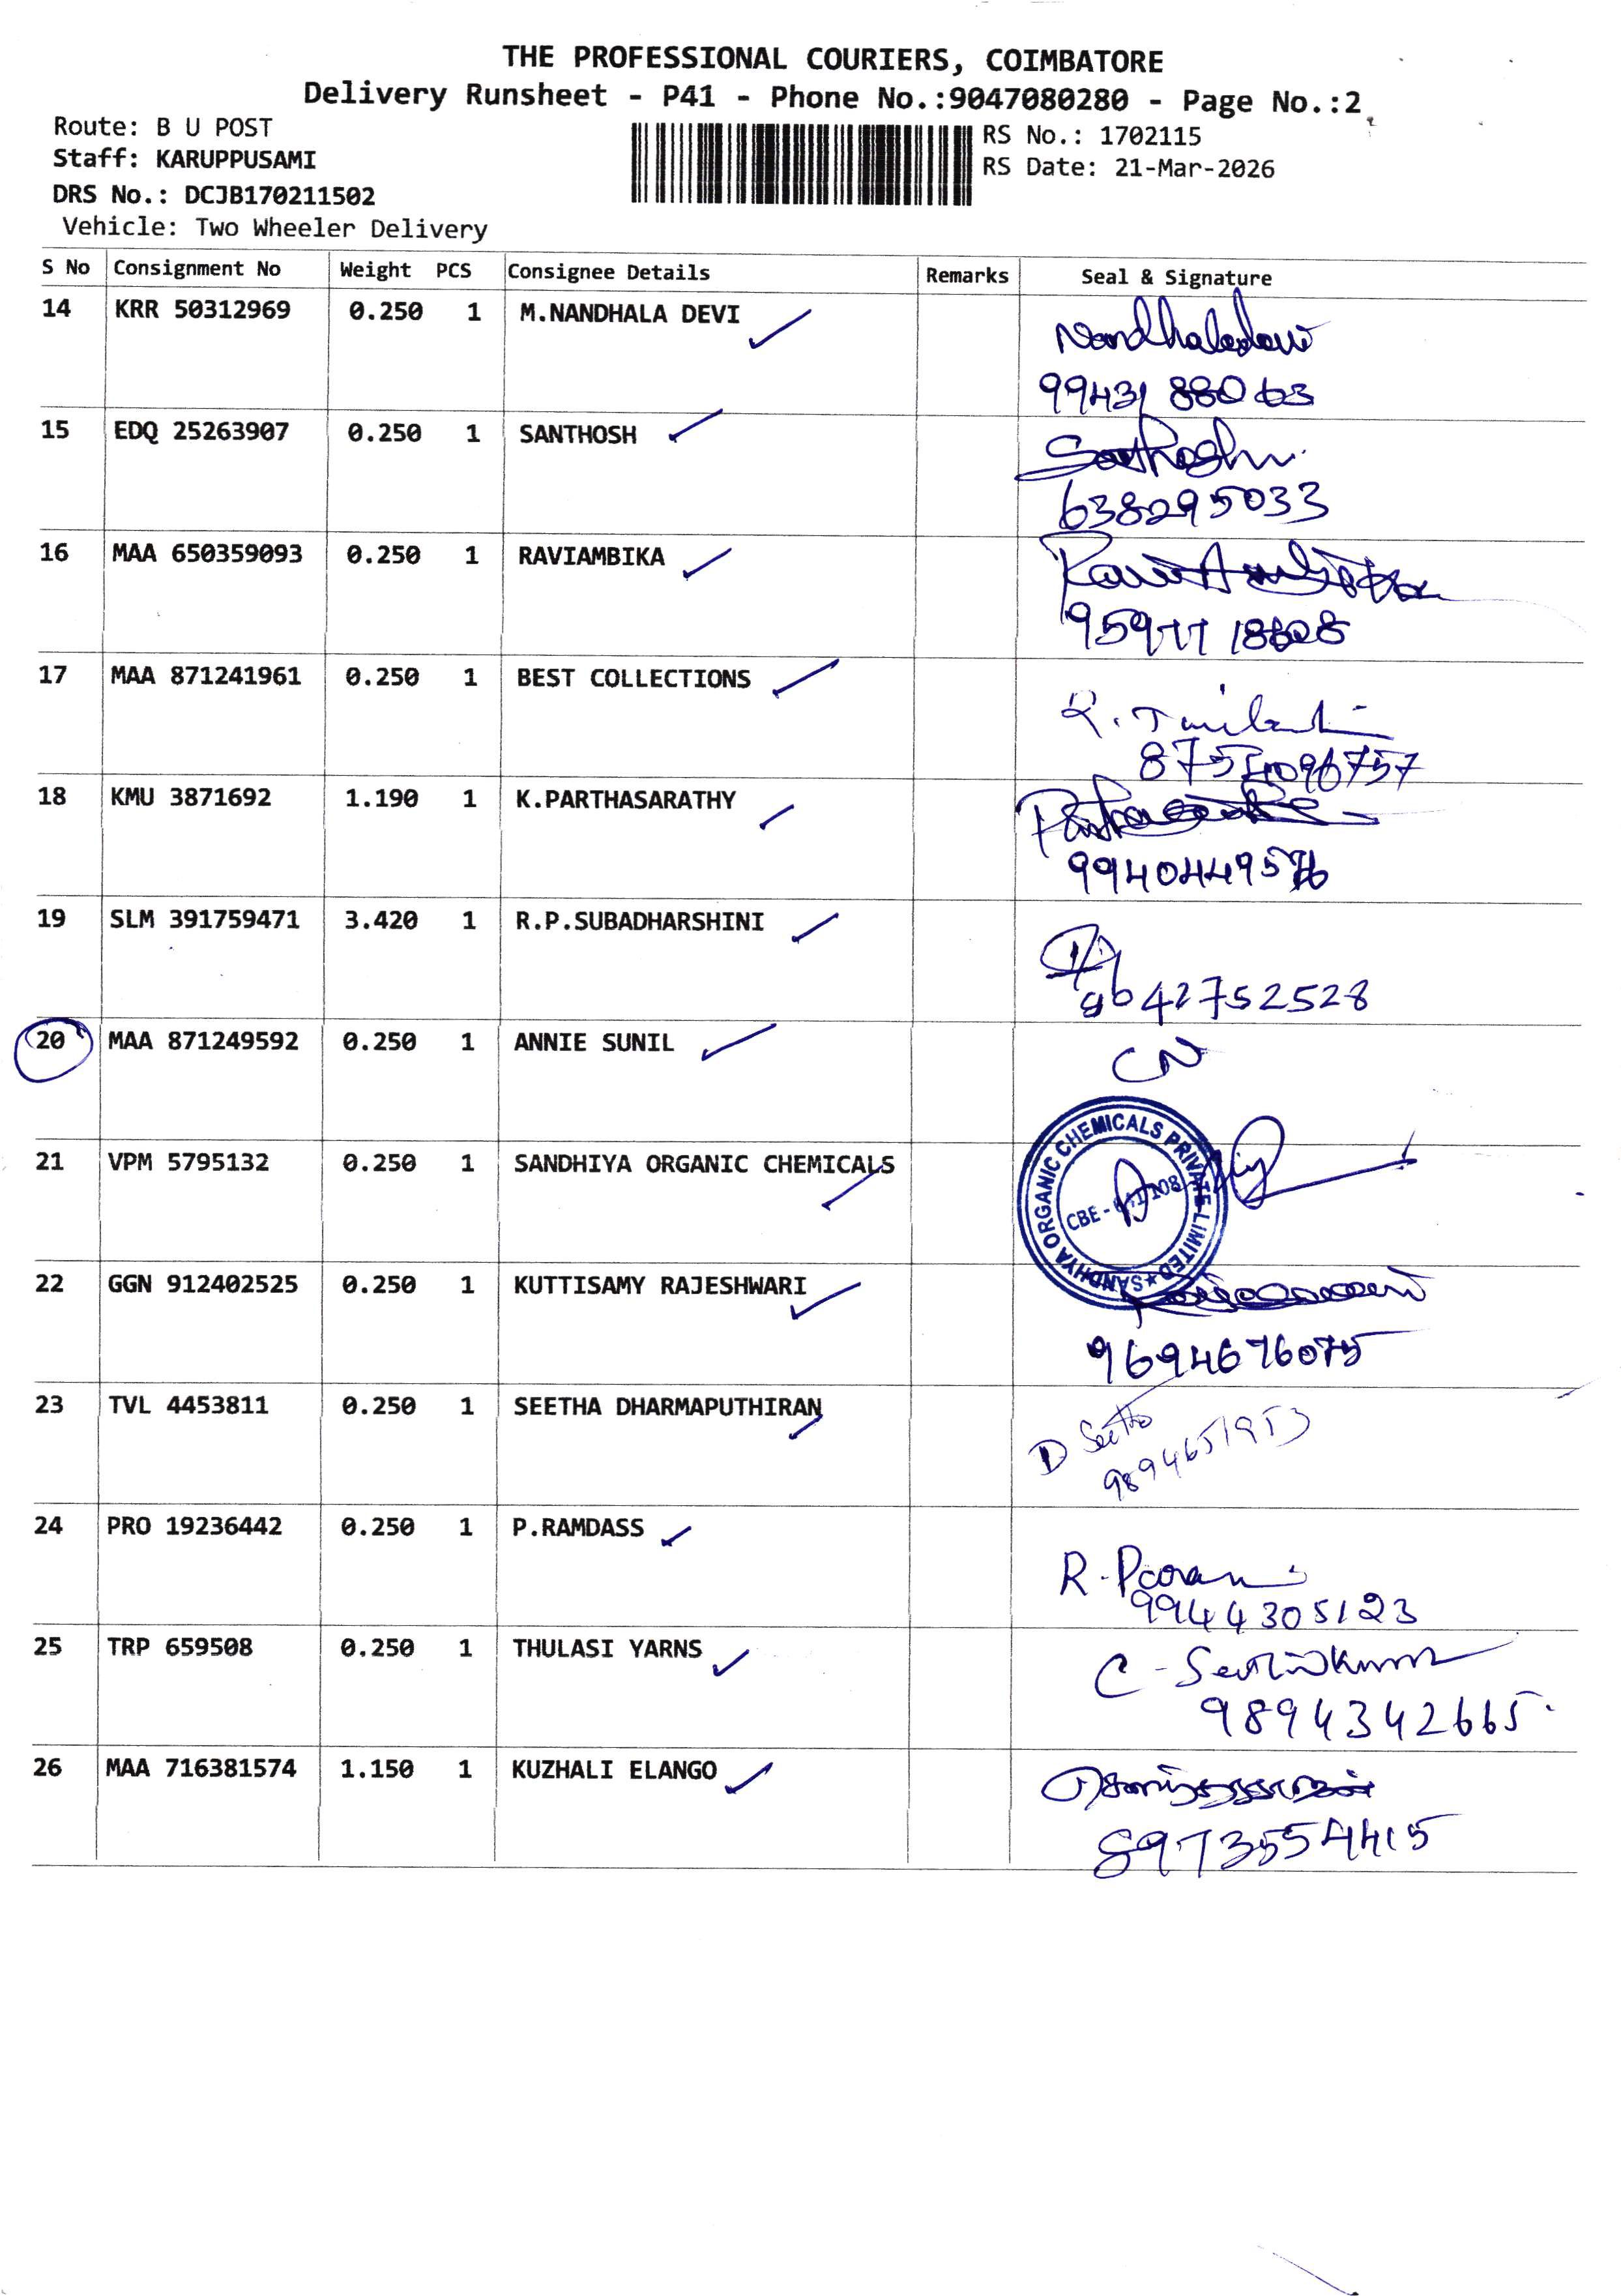 THE PROFESSIONAL COURIERS, COIMBATORE
Delivery Runsheet - P41 - Phone No.:9047080280 - Page No.:2
Route: B U POST
Staff: KARUPPUSAMI
DRS No.: DCJB170211502
Vehicle: Two Wheeler Delivery
RS No.: 1702115
RS Date: 21-Mar-2026
S No Consignment No Weight PCS Consignee Details Remarks Seal & Signature
14 KRR 50312969 0.250 1 M.NANDHALA DEVI
15 EDQ 25263907 0.250 1 SANTHOSH
638295033
16 MAA 650359093 0.250 1 RAVIAMBIKA
17 MAA 871241961 0.250 1 BEST COLLECTIONS
18 KMU 3871692 1.190 1 K.PARTHASARATHY
19 SLM 391759471 3.420 1 R.P.SUBADHARSHINI
9042752528
20 MAA 871249592 0.250 1 ANNIE SUNIL CN
21 VPM 5795132 0.250 1 SANDHIYA ORGANIC CHEMICALS
SANDHYA ORGANIC CHEMICALS PRIVATE LIMITED
CBE -
22 GGN 912402525 0.250 1 KUTTISAMY RAJESHWARI
9694676075
23 TVL 4453811 0.250 1 SEETHA DHARMAPUTHIRAN
D Seetha
9894651953
24 PRO 19236442 0.250 1 P.RAMDASS
9944305123
25 TRP 659508 0.250 1 THULASI YARNS
9894342665
26 MAA 716381574 1.150 1 KUZHALI ELANGO
8973554415